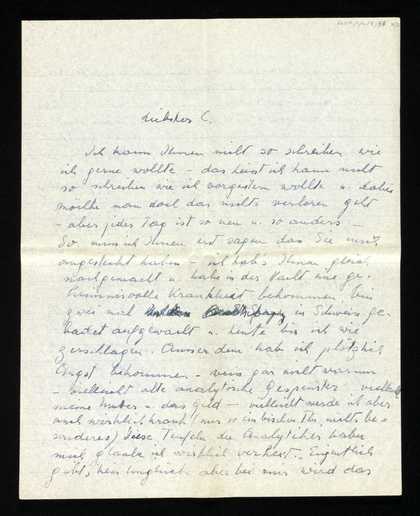 Liebstes C.
Ich kann Ihnen nicht so schreiben wie
ich gerne wollte – das heist ich kann nicht
so schreiben wie ich vorgestern wollte u. dabei
möchte man doch das nichts verloren geht
– aber jeder Tag ist so neu u. so anders –
So, nun muss ich Ihnen erst sagen das Sie mich
angesteckt haben – ich habs Ihnen gleich
nachgemacht u. habe in der Nacht eine ge-
heimnisvolle Krankheit bekommen bin
zwei mal in Schweiss ge-
badet aufgewacht u. heute bin ich wie
zerschlagen. Ausser dem hab ich plötzlich
Angst bekommen – weis gar nicht warum
– vielleicht alte analytische Gespenster – vielleicht
meine Mutter u. das Geld – vielleicht werde ich aber
auch wirklich krank (nur so ein bischen, nichts be-
sonderes) diese Teufeln die Analytiker haben
mich glaube ich wirklich verhext. Eigentlich
geht, kein Unglück aber bei mir wird das